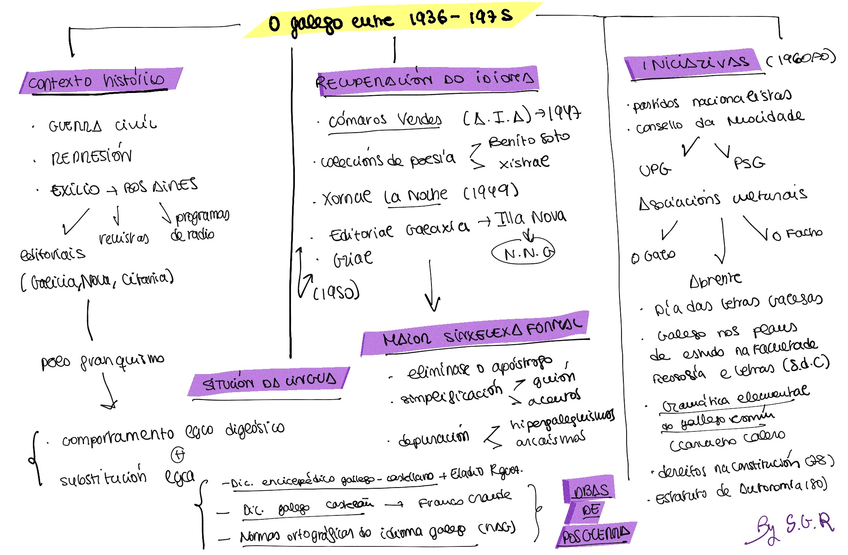 O galego entre 1936-1975
Contexto histórico
· GUERRA CIVIL
· REPRESIÓN
· EXILIO → BOS AIRES
editoriais
revistas
programas
de radio
(Galicia, Nova, Citania)
polo franquismo
· comportamento lgco diglósico
+
substitución lgca
SITUCIÓN DA LINGUA
RECUPERACIÓN DO IDIOMA
· Cómaros Verdes (A.I.A) → 1947
· coleccións de poesía
Benito Soto
Xistral
· Xornal La Noche (1949)
· Editorial Galaxia → Illa Nova
· Grial
N.N.G
(1950)
MAIOR SINXELEXA FORMAL
· elimínase o apóstrofo
· simplificación
guión
acentos
· depuración
hipergaleguismos
arcaísmos
- Dic. enciclopédico gallego-castellano → Eladio Rguez.
- Dic. galego castelán → Franco Grande
- Normas ortográficas do idioma galego (RAG)
OBAS
DE
POSGUERRA
INICIATIVAS (1960/70)
· partidos nacionalistas
· Consello da Mocidade
UPG
PSG
Asociacións culturais
O Galo
Abrente
O Facho
· Día das Letras Galegas
· Galego nos plans
de estudo na Facultade
Filosofía e Letras (S.d.C)
· Gramática elemental
do gallego común
Carballo Calero
· dereitos na constitución (78)
· Estatuto de Autonomía (80)
By S.G.R